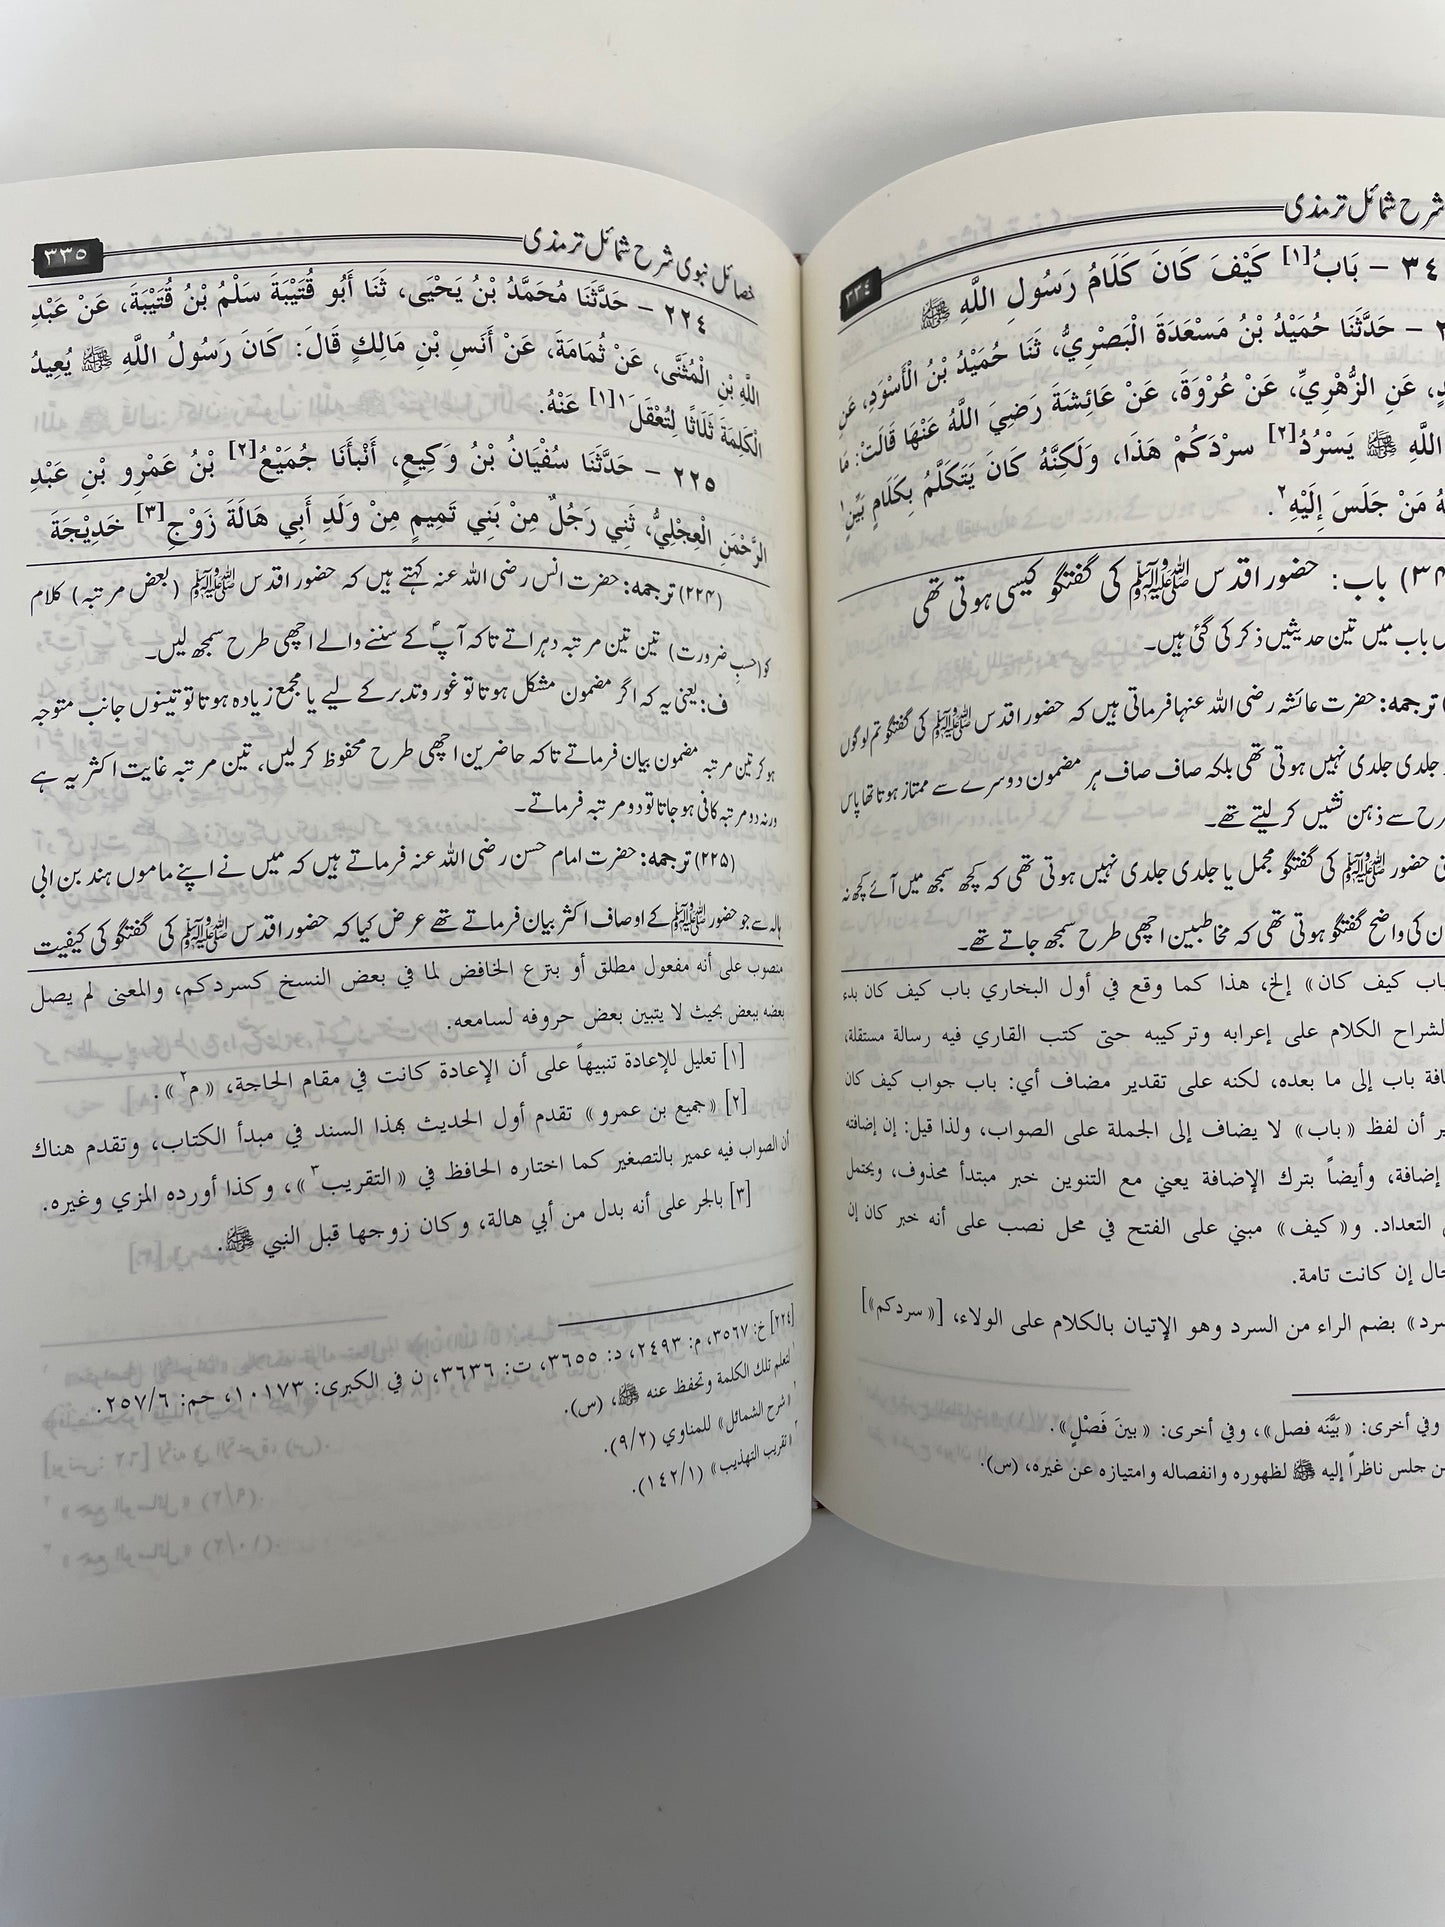 شرح شمائل ترمذی
٣٣٤
٣٤ - بَابُ[١] كَيْفَ كَانَ كَلَامُ رَسُولِ اللَّهِ ﷺ
- حَدَّثَنَا حُمَيْدُ بْنُ مَسْعَدَةَ الْبَصْرِيُّ، ثَنَا حُمَيْدُ بْنُ الْأَسْوَدِ، عَنِ
عَنِ الزُّهْرِيِّ، عَنْ عُرْوَةَ، عَنْ عَائِشَةَ رَضِيَ اللَّهُ عَنْهَا قَالَتْ: مَا
اللَّهِ ﷺ يَسْرُدُ[٢] سرْدَكُمْ هَذَا، وَلَكِنَّهُ كَانَ يَتَكَلَّمُ بِكَلَامٍ بَيِّنٍ١
مَنْ جَلَسَ إِلَيْهِ٢.
(٣٤) باب: حضور اقدس ﷺ کی گفتگو کیسی ہوتی تھی
باب میں تین حدیثیں ذکر کی گئی ہیں۔
ترجمہ: حضرت عائشہ رضی اللہ عنہا فرماتی ہیں کہ حضور اقدس ﷺ کی گفتگو تم لوگوں
جلدی جلدی نہیں ہوتی تھی بلکہ صاف صاف ہر مضمون دوسرے سے ممتاز ہوتا تھا پاس
سے ذہن نشیں کر لیتے تھے۔
حضور ﷺ کی گفتگو مجمل یا جلدی جلدی نہیں ہوتی تھی کہ کچھ سمجھ میں آئے کچھ نہ
کی واضح گفتگو ہوتی تھی کہ مخاطبین اچھی طرح سمجھ جاتے تھے۔
باب كيف كان» إلخ، هذا كما وقع في أول البخاري باب كيف كان بدء
الشراح الكلام على إعرابه وتركيبه حتى كتب القاري فيه رسالة مستقلة،
باب إلى ما بعده، لكنه على تقدير مضاف أي: باب جواب كيف كان
أن لفظ «باب» لا يضاف إلى الجملة على الصواب، ولذا قيل: إن إضافته
إضافة، وأيضاً بترك الإضافة يعني مع التنوين خبر مبتدأ محذوف، ويحتمل
التعداد. و«كيف» مبني على الفتح في محل نصب على أنه خبر كان إن
حال إن كانت تامة.
بضم الراء من السرد وهو الإتيان بالكلام على الولاء، [«سردكم»]
وفي أخرى: «بَيَّنَه فصل»، وفي أخرى: «بينَ فَصْلٍ».
جلس ناظراً إليه ﷺ لظهوره وانفصاله وامتيازه عن غيره، (س).
خصائل نبوی شرح شمائل ترمذی
٣٣٥
٢٢٤ - حَدَّثَنَا مُحَمَّدُ بْنُ يَحْيَى، ثَنَا أَبُو قُتَيْبَةَ سَلْمُ بْنُ قُتَيْبَةَ، عَنْ عَبْدِ
اللَّهِ بْنِ الْمُثَنَّى، عَنْ ثُمَامَةَ، عَنْ أَنَسِ بْنِ مَالِكٍ قَالَ: كَانَ رَسُولُ اللَّهِ ﷺ يُعِيدُ
الْكَلِمَةَ ثَلَاثًا لِتُعْقَلَ١[١] عَنْهُ.
٢٢٥ - حَدَّثَنَا سُفْيَانُ بْنُ وَكِيعٍ، أَنْبأَنَا جُمَيْعُ[٢] بْنُ عَمْرِو بْنِ عَبْدِ
الرَّحْمَنِ الْعِجْلِيُّ، ثَنِي رَجُلٌ مِنْ بَنِي تَمِيمٍ مِنْ وَلَدِ أَبِي هَالَةَ زَوْجِ[٣] خَدِيْجَةَ
(٢٢٤) ترجمہ: حضرت انس رضی اللہ عنہ کہتے ہیں کہ حضور اقدس ﷺ (بعض مرتبہ) کلام
کو (حسبِ ضرورت) تین تین مرتبہ دہراتے تاکہ آپؐ کے سننے والے اچھی طرح سمجھ لیں۔
ف: یعنی یہ کہ اگر مضمون مشکل ہوتا تو غور وتدبر کے لیے یا مجمع زیادہ ہوتا تو تینوں جانب متوجہ
ہو کر تین مرتبہ مضمون بیان فرماتے تاکہ حاضرین اچھی طرح محفوظ کر لیں، تین مرتبہ غایت اکثر یہ ہے
ورنہ دو مرتبہ کافی ہو جاتا تو دو مرتبہ فرماتے۔
(٢٢٥) ترجمہ: حضرت امام حسن رضی اللہ عنہ فرماتے ہیں کہ میں نے اپنے ماموں ہند بن ابی
ہالہ سے جو حضور ﷺ کے اوصاف اکثر بیان فرماتے تھے عرض کیا کہ حضور اقدس ﷺ کی گفتگو کی کیفیت
منصوب على أنه مفعول مطلق أو بنزع الخافض لما في بعض النسخ كسردكم، والمعنى لم يصل
بعضه ببعض بحيث لا يتبين بعض حروفه لسامعه.
[١] تعليل للإعادة تنبيهاً على أن الإعادة كانت في مقام الحاجة، «م٢».
[٢] «جميع بن عمرو» تقدم أول الحديث بهذا السند في مبدأ الكتاب، وتقدم هناك
أن الصواب فيه عمير بالتصغير كما اختاره الحافظ في «التقريب٣»، وكذا أورده المزي وغيره.
[٣] بالجر على أنه بدل من أبي هالة، وكان زوجها قبل النبي ﷺ.
[٢٢٤] خ: ٣٥٦٧، م: ٢٤٩٣، د: ٣٦٥٥، ت: ٣٦٣٦، ن في الكبرى: ١٠١٧٣، حم: ٢٥٧/٦.
١ لتعلم تلك الكلمة وتحفظ عنه ﷺ، (س).
٢ «شرح الشمائل» للمناوي (٩/٢).
٣ «تقريب التهذيب» (١٤٢/١).